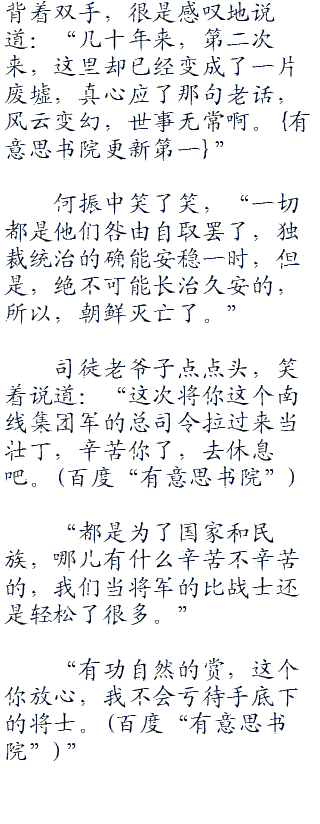 背着双手，很是感叹地说
道：“几十年来，第二次
来，这里却已经变成了一片
废墟，真心应了那句老话，
风云变幻，世事无常啊。{有
意思书院更新第一}”
何振中笑了笑，“一切
都是他们咎由自取罢了，独
裁统治的确能安稳一时，但
是，绝不可能长治久安的，
所以，朝鲜灭亡了。”
司徒老爷子点点头，笑
着说道：“这次将你这个南
线集团军的总司令拉过来当
壮丁，辛苦你了，去休息
吧。(百度“有意思书院”)
“都是为了国家和民
族，哪儿有什么辛苦不辛苦
的，我们当将军的比战士还
是轻松了很多。”
“有功自然的赏，这个
你放心，我不会亏待手底下
的将士。(百度“有意思书
院”)”